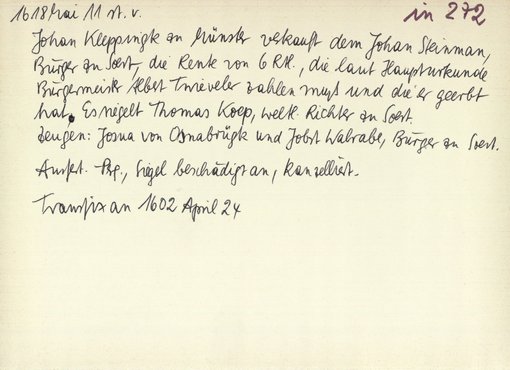 1618 Mai 11 st. v.
in 272
Johan Kleppingk zu Münster verkauft dem Johan Steinman,
Bürger zu Soest, die Rente von 6 Rtl., die laut Haupturkunde
Bürgermeister Albert Twieveler zahlen muß und die er geerbt
hat. Es siegelt Thomas Koep, weltl. Richter zu Soest.
Zeugen: Josua von Osnabrügk und Jobst Walrabe, Bürger zu Soest.
Ausfert. Perg., Siegel beschädigt an, kanzelliert.
Transfix an 1602 April 24